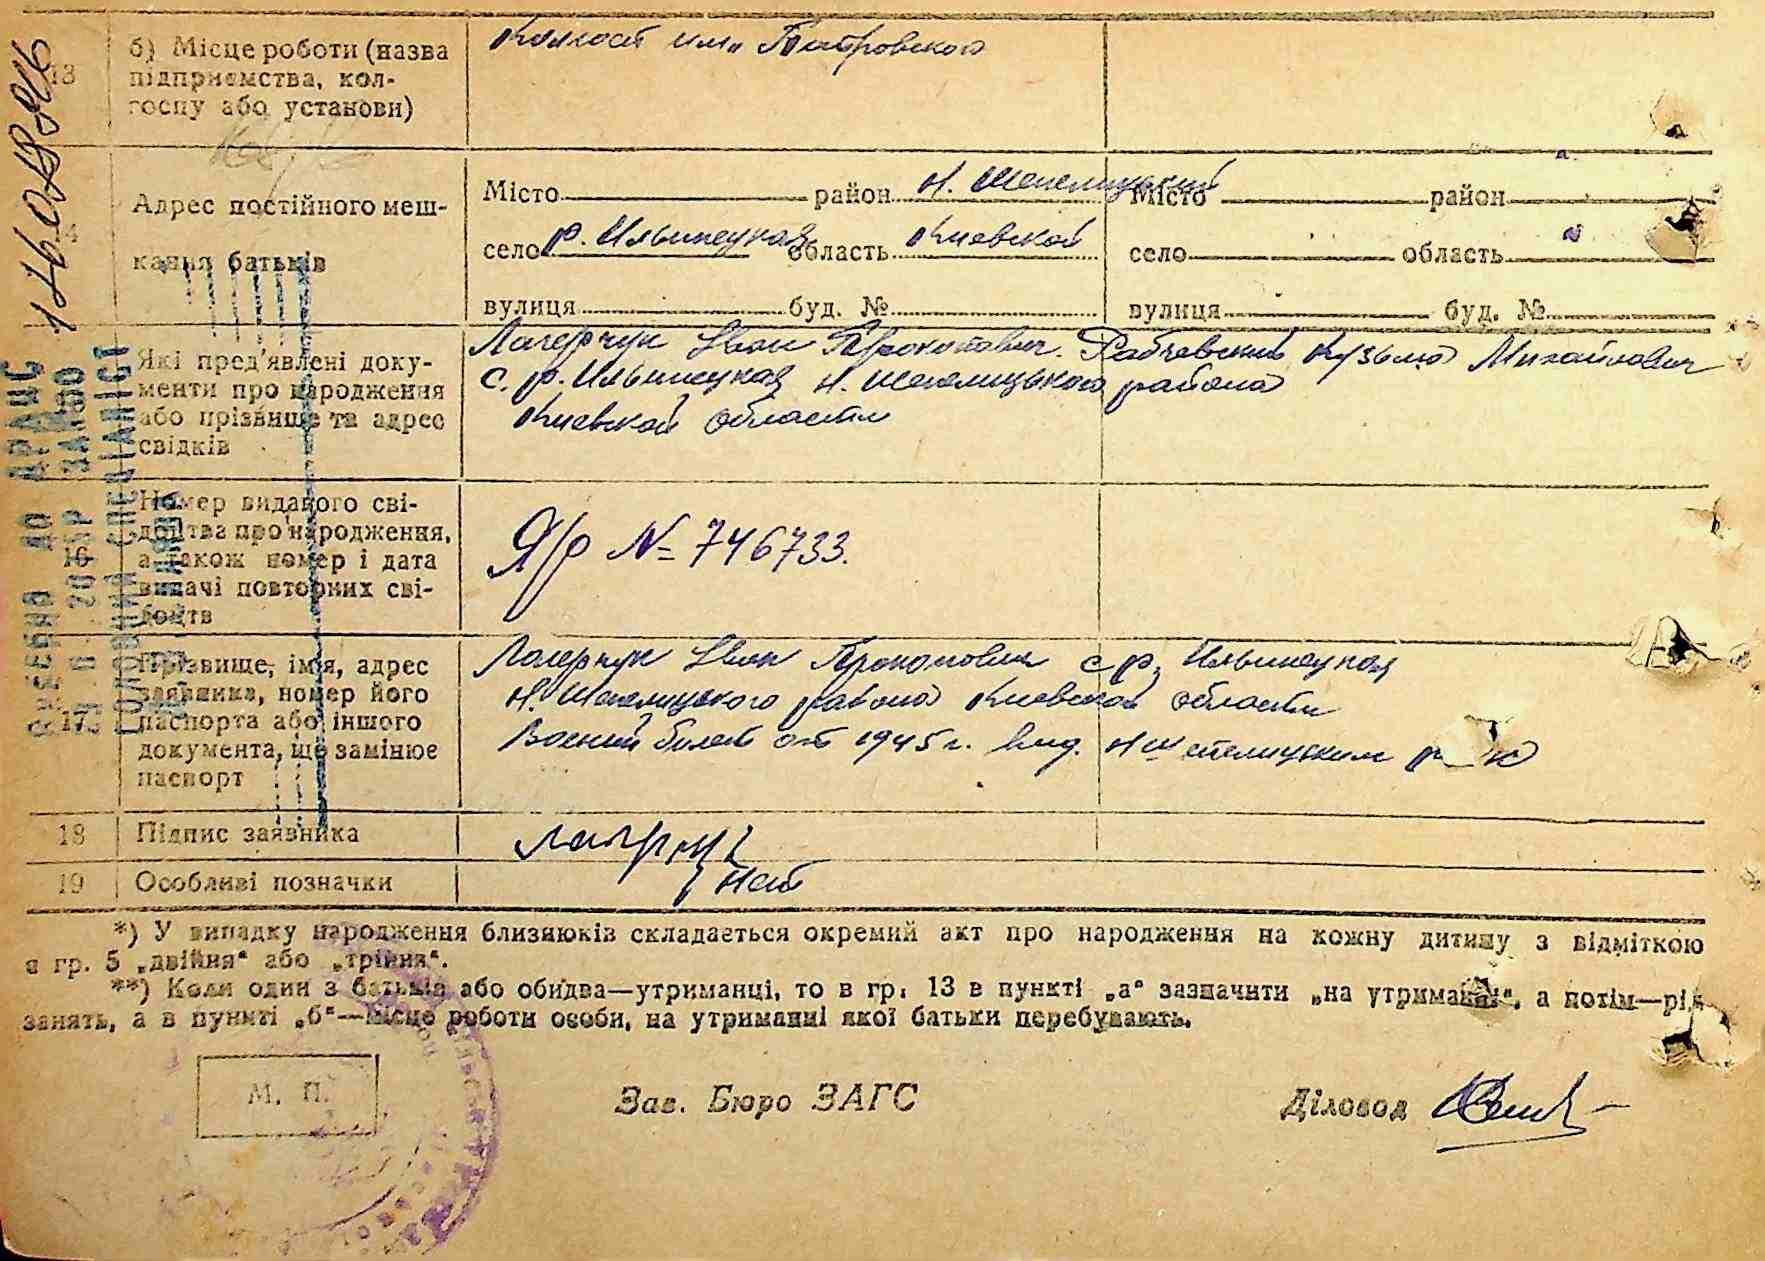 13
б) Місце роботи (назва підприємства, колгоспу або установи)
Колхоз им. Петровского
Адрес постійного мешкання батьків
Місто район Н. Шепелицький
село р. Ильинецкая область Киевской
вулиця буд. №
Місто район
село область
вулиця буд. №
Які пред'явлені документи про народження або прізвище та адрес свідків
Лагерчук Иван Прокопович. Рабчевский Кузьма Михайлович
с. р. Ильинецкая Н. Шепелицького района
Киевской области
16
Номер виданого свідоцтва про народження, а також номер і дата видачі повторних свідоцтв
№ 746733.
17
Прізвище, ім'я, адрес заявника, номер його паспорта або іншого документа, що замінює паспорт
Лагерчук Иван Прокопович с р. Ильинецкая
Н. Шепелицского района Киевской области
Воений билет от 1945 г. выд. Н Шепелицским
18 Підпис заявника
19 Особливі позначки
нет
*) У випадку народження близнюків складається окремий акт про народження на кожну дитину з відміткою
в гр. 5 „двійня“ або „трійня“.
**) Коли один з батьків або обидва—утриманці, то в гр. 13 в пункті „а“ зазначити „на утриманні“, а потім—рід
занять, а в пункті „б“—місце роботи особи, на утриманні якої батьки перебувають.
М. П.
Зав. Бюро ЗАГС
Діловод